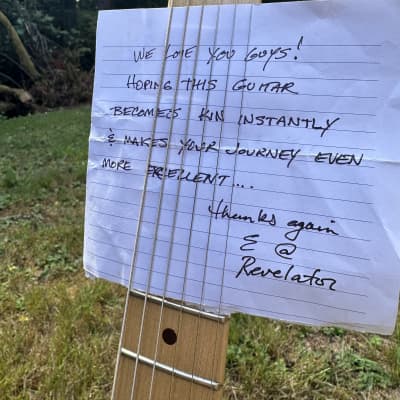 WE LOVE YOU GUYS!
HOPING THIS GUITAR
BECOMES KIN INSTANTLY
& MAKES YOUR JOURNEY EVEN
MORE EXCELLENT...
thanks again
E @
Revelator